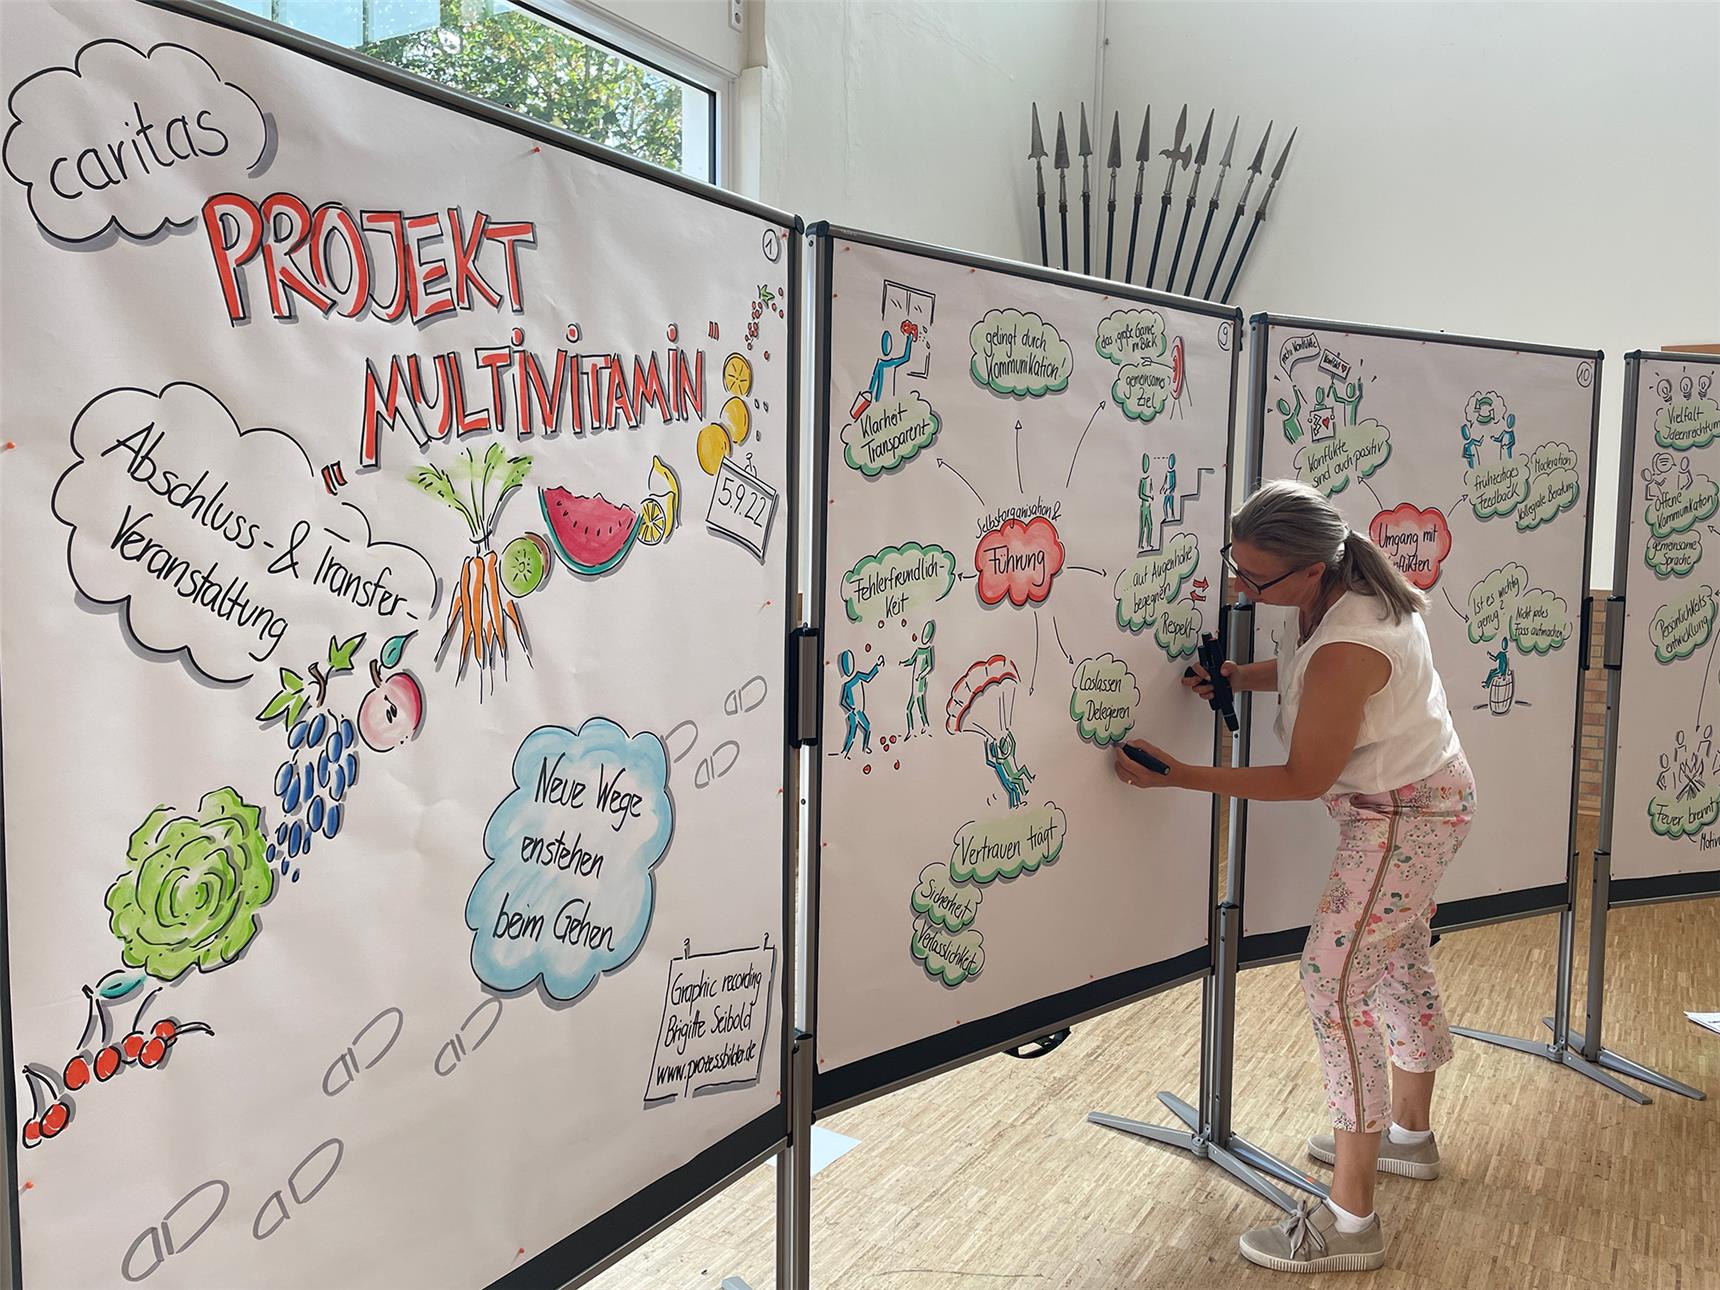 caritas
1
PROJEKT
"MULTIVITAMIN"
Abschluss- & Transfer-
Veranstaltung
5.9.22
Neue Wege
enstehen
beim Gehen
Graphic recording
Brigitte Seibold
www.prozessbilder.de
9
Klarheit
Transparent
gelingt durch
Kommunikation!
das große Ganze
im Blick
gemeinsames
Ziel
Selbstorganisation &
Führung
Fehlerfreundlich-
keit
auf Augenhöhe
begegnen
Respekt
Loslassen
Delegieren
Vertrauen trägt
Sicherheit
Verlässlichkeit
10
Konflikte
sind auch positiv
frühzeitiges
Feedback
Moderation
Kollegiale Beratung
Umgang mit
Ist es wichtig
genug?
Nicht jedes
Fass aufmachen!
Vielfalt
Ideenreichtum
Offene
Kommunikation
gemeinsame
Sprache
Persönlichkeits
entwicklung
Feuer brennt